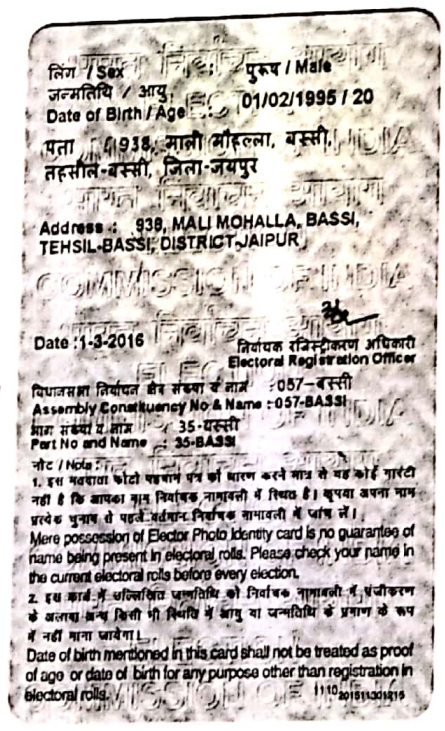 लिंग / Sex : पुरूष / Male
जन्मतिथि / आयु
Date of Birth / Age 01/02/1995 / 20
पता : 938, माली मौहल्ला, बस्सी,
तहसील-बस्सी, जिला-जयपुर
Address : 938, MALI MOHALLA, BASSI,
TEHSIL-BASSI, DISTRICT-JAIPUR
Date :1-3-2016
निर्वाचक रजिस्ट्रीकरण अधिकारी
Electoral Registration Officer
विधानसभा निर्वाचन क्षेत्र संख्या व नाम : 057-बस्सी
Assembly Constituency No & Name : 057-BASSI
भाग संख्या व नाम : 35-बस्सी
Part No and Name : 35-BASSI
नोट / Note :
1. इस मतदाता फोटो पहचान पत्र को धारण करने मात्र से यह कोई गारंटी
नहीं है कि आपका नाम निर्वाचक नामावली में स्थित है। कृपया अपना नाम
प्रत्येक चुनाव से पहले वर्तमान निर्वाचक नामावली में जांच लें।
Mere possession of Elector Photo Identity card is no guarantee of
name being present in electoral rolls. Please check your name in
the current electoral rolls before every election.
2. इस कार्ड में उल्लिखित जन्मतिथि को निर्वाचक नामावली में पंजीकरण
के अलावा अन्य किसी भी स्थिति में आयु या जन्मतिथि के प्रमाण के रूप
में नहीं माना जायेगा।
Date of birth mentioned in this card shall not be treated as proof
of age or date of birth for any purpose other than registration in
electoral rolls.
भारत निर्वाचन आयोग
ELECTION
COMMISSION OF INDIA